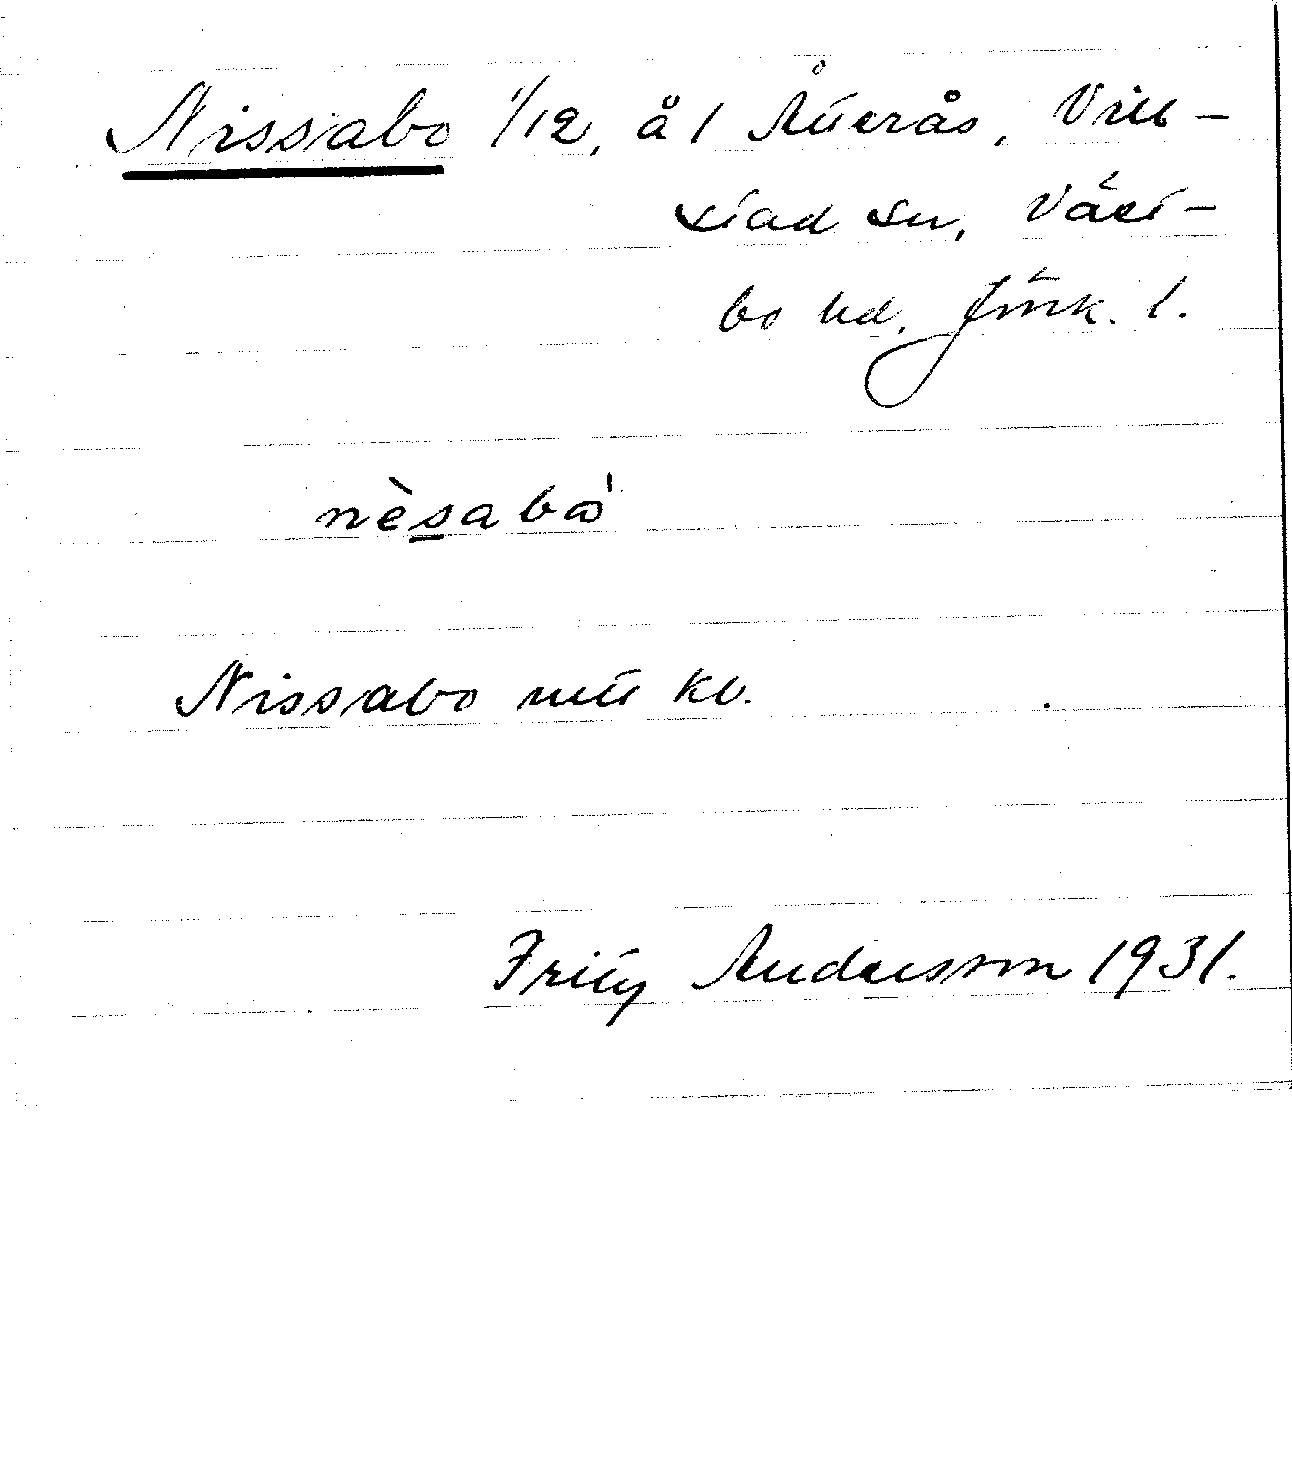 Nissabo 1/12, å 1 Åtterås, Vill-
stad sn, Väst-
bo hd. Jönk. l.
nèsabò
Nissabo mtl kb.
Fritz Andersson 1931.